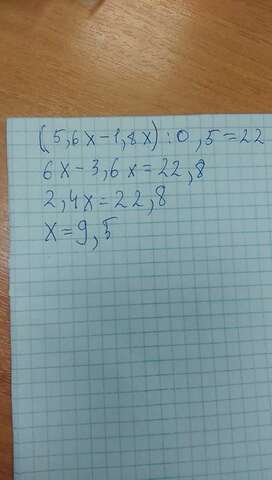 (5,6x-1,8x):0,5=22
6x-3,6x=22,8
2,4x=22,8
x=9,5